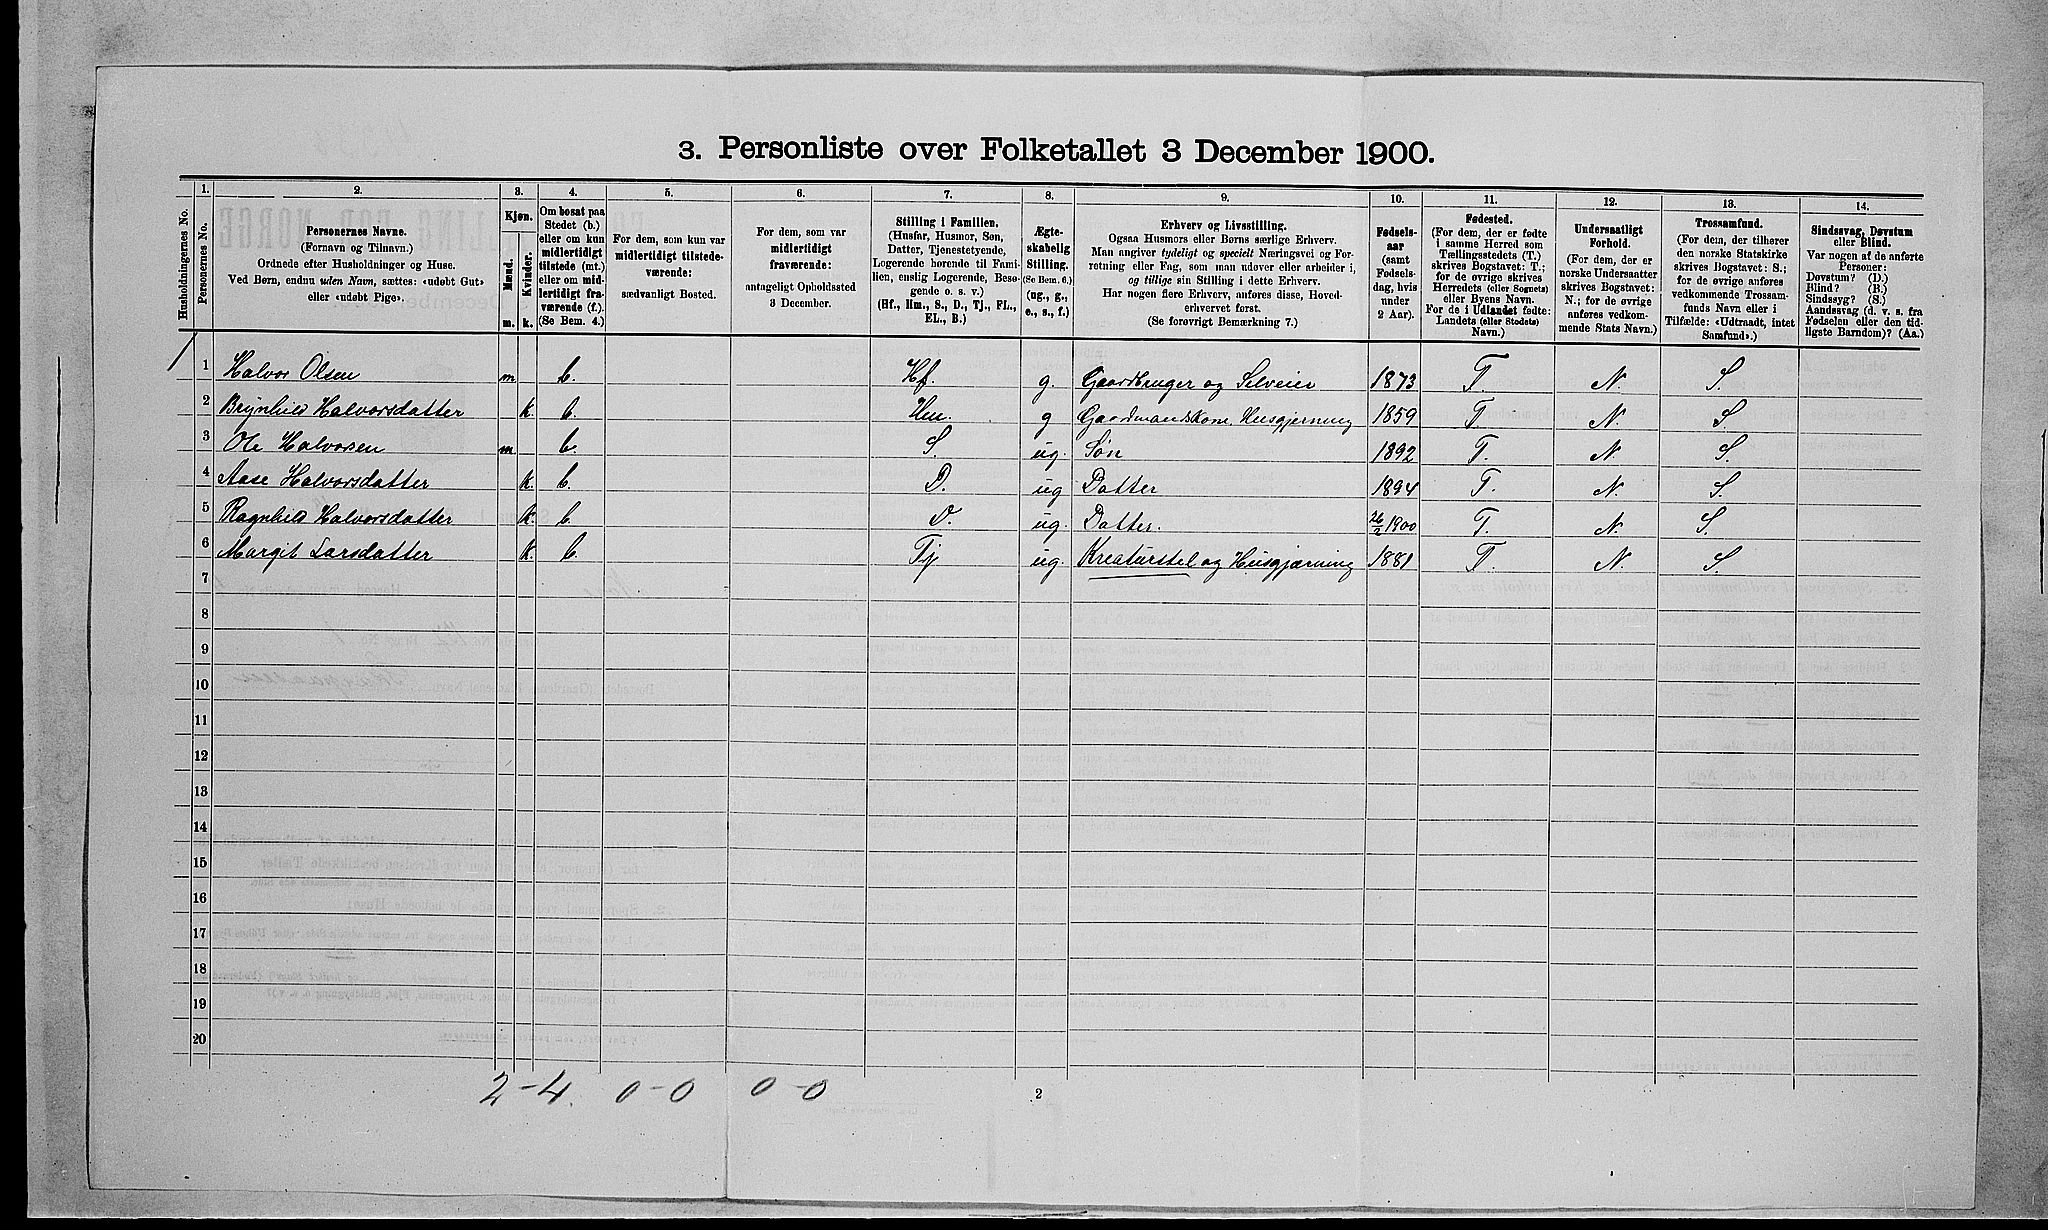 3. Personliste over Folketallet 3 December 1900.
Husholdningernes No.
1.
Personernes No.
2.
Personernes Navne.
(Fornavn og Tilnavn.)
Ordnede efter Husholdninger og Huse.
Ved Børn, endnu uden Navn, sættes: «udøbt Gut»
eller «udøbt Pige».
3.
Kjøn.
Mænd.
Kvinder.
m.
k.
4.
Om bosat paa
Stedet (b.)
eller om kun
midlertidigt
tilstede (mt.)
eller om mid-
lertidigt fra-
værende (f.).
(Se Bem. 4.)
5.
For dem, som kun var
midlertidigt tilstede-
værende:
sædvanligt Bosted.
6.
For dem, som var
midlertidigt
fraværende:
antageligt Opholdssted
3 December.
7.
Stilling i Familien.
(Husfar, Husmor, Søn,
Datter, Tjenestetyende,
Logerende hørende til Fami-
lien, enslig Logerende, Besø-
gende o. s. v.)
(Hf., Hm., S., D., Tj., FL.,
EL., B.)
8.
Ægte-
skabelig
Stilling.
(Se Bem. 6.)
(ug., g.,
e., s., f.)
9.
Erhverv og Livsstilling.
Ogsaa Husmors eller Børns særlige Erhverv.
Man angiver tydeligt og specielt Næringsvei og For-
retning eller Fag, som man udøver eller arbeider i,
og tillige sin Stilling i dette Erhverv.
Har nogen flere Erhverv, anføres disse, Hoved-
erhvervet først.
(Se forøvrigt Bemærkning 7.)
10.
Fødsels-
aar
(samt
Fødsels-
dag, hvis
under
2 Aar).
11.
Fødested.
(For dem, der er fødte
i samme Herred som
Tællingsstedets (T.)
skrives Bogstavet: T.;
for de øvrige skrives
Herredets (eller Sognets)
eller Byens Navn.
For de i Udlandet fødte:
Landets (eller Stedets)
Navn.)
12.
Undersaatligt
Forhold.
(For dem, der er
norske Undersaatter
skrives Bogstavet:
N.; for de øvrige
anføres vedkom-
mende Stats Navn.)
13.
Trossamfund.
(For dem, der tilhører
den norske Statskirke
skrives Bogstavet: S.;
for de øvrige anføres
vedkommende Trossam-
funds Navn eller i
Tilfælde: «Udtraadt, intet
Samfund».)
14.
Sindssvag, Døvstum
eller Blind.
Var nogen af de anførte
Personer:
Døvstum? (D.)
Blind? (B.)
Sindssyg? (S.)
Aandssvag (d. v. s. fra
Fødselen eller den tid-
ligste Barndom)? (Aa.)
1 Halvor Olsen m b. Hf. g. Gaardbruger og Selveier 1873 T. N. S.
2 Brynhild Halvorsdatter k. b. Hm. g Gaardmandskone, Husgjerning 1859 T N. S.
3 Ole Halvorsen m b. S. ug. Søn 1892 T. N. S.
4 Aase Halvorsdatter k. b. D. ug Datter 1894 T. N. S.
5 Ragnhild Halvorsdatter k. b. D. ug. Datter. 26/2 1900 T. N. S.
6 Margit Larsdatter k. b Tj ug. Kreaturstel og Husgjerning 1881 T. N. S.
7
8
9
10
11
12
13
14
15
16
17
18
19
20
2-4. 0-0 0-0
2